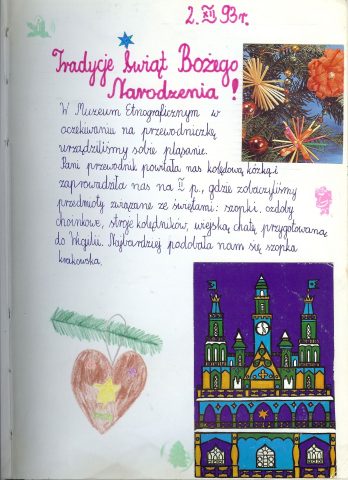 2. XII 93r.
Tradycje Świąt Bożego
Narodzenia!
W Muzeum Etnograficznym w
oczekiwaniu na przewodniczkę
urządziliśmy sobie pląsanie.
Pani przewodnik powitała nas kolędową kózką i
zaprowadziła nas na II p., gdzie zobaczyliśmy
przedmioty związane ze świętami: szopki, ozdoby
choinkowe, stroje kolędników, wiejską chatę przygotowaną
do Wigilii. Najbardziej podobała nam się szopka
krakowska.